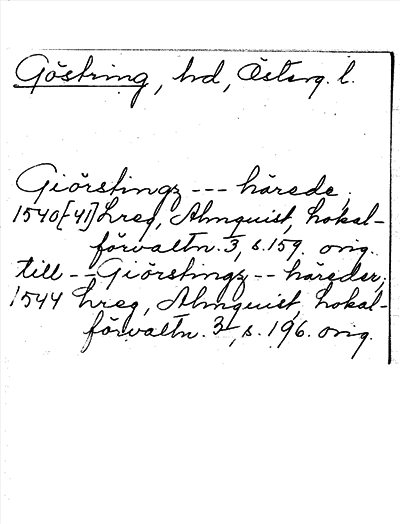 Göstring, hd, Österg. l.
Giörstingz --- härede,
1540[-41] Lreg, Almquist, Lokal-
förvaltn. 3, s. 159. orig.
till -- Giörstingz -- häreder,
1544 Lreg, Almquist, Lokal-
förvaltn. 3, s. 196. orig.